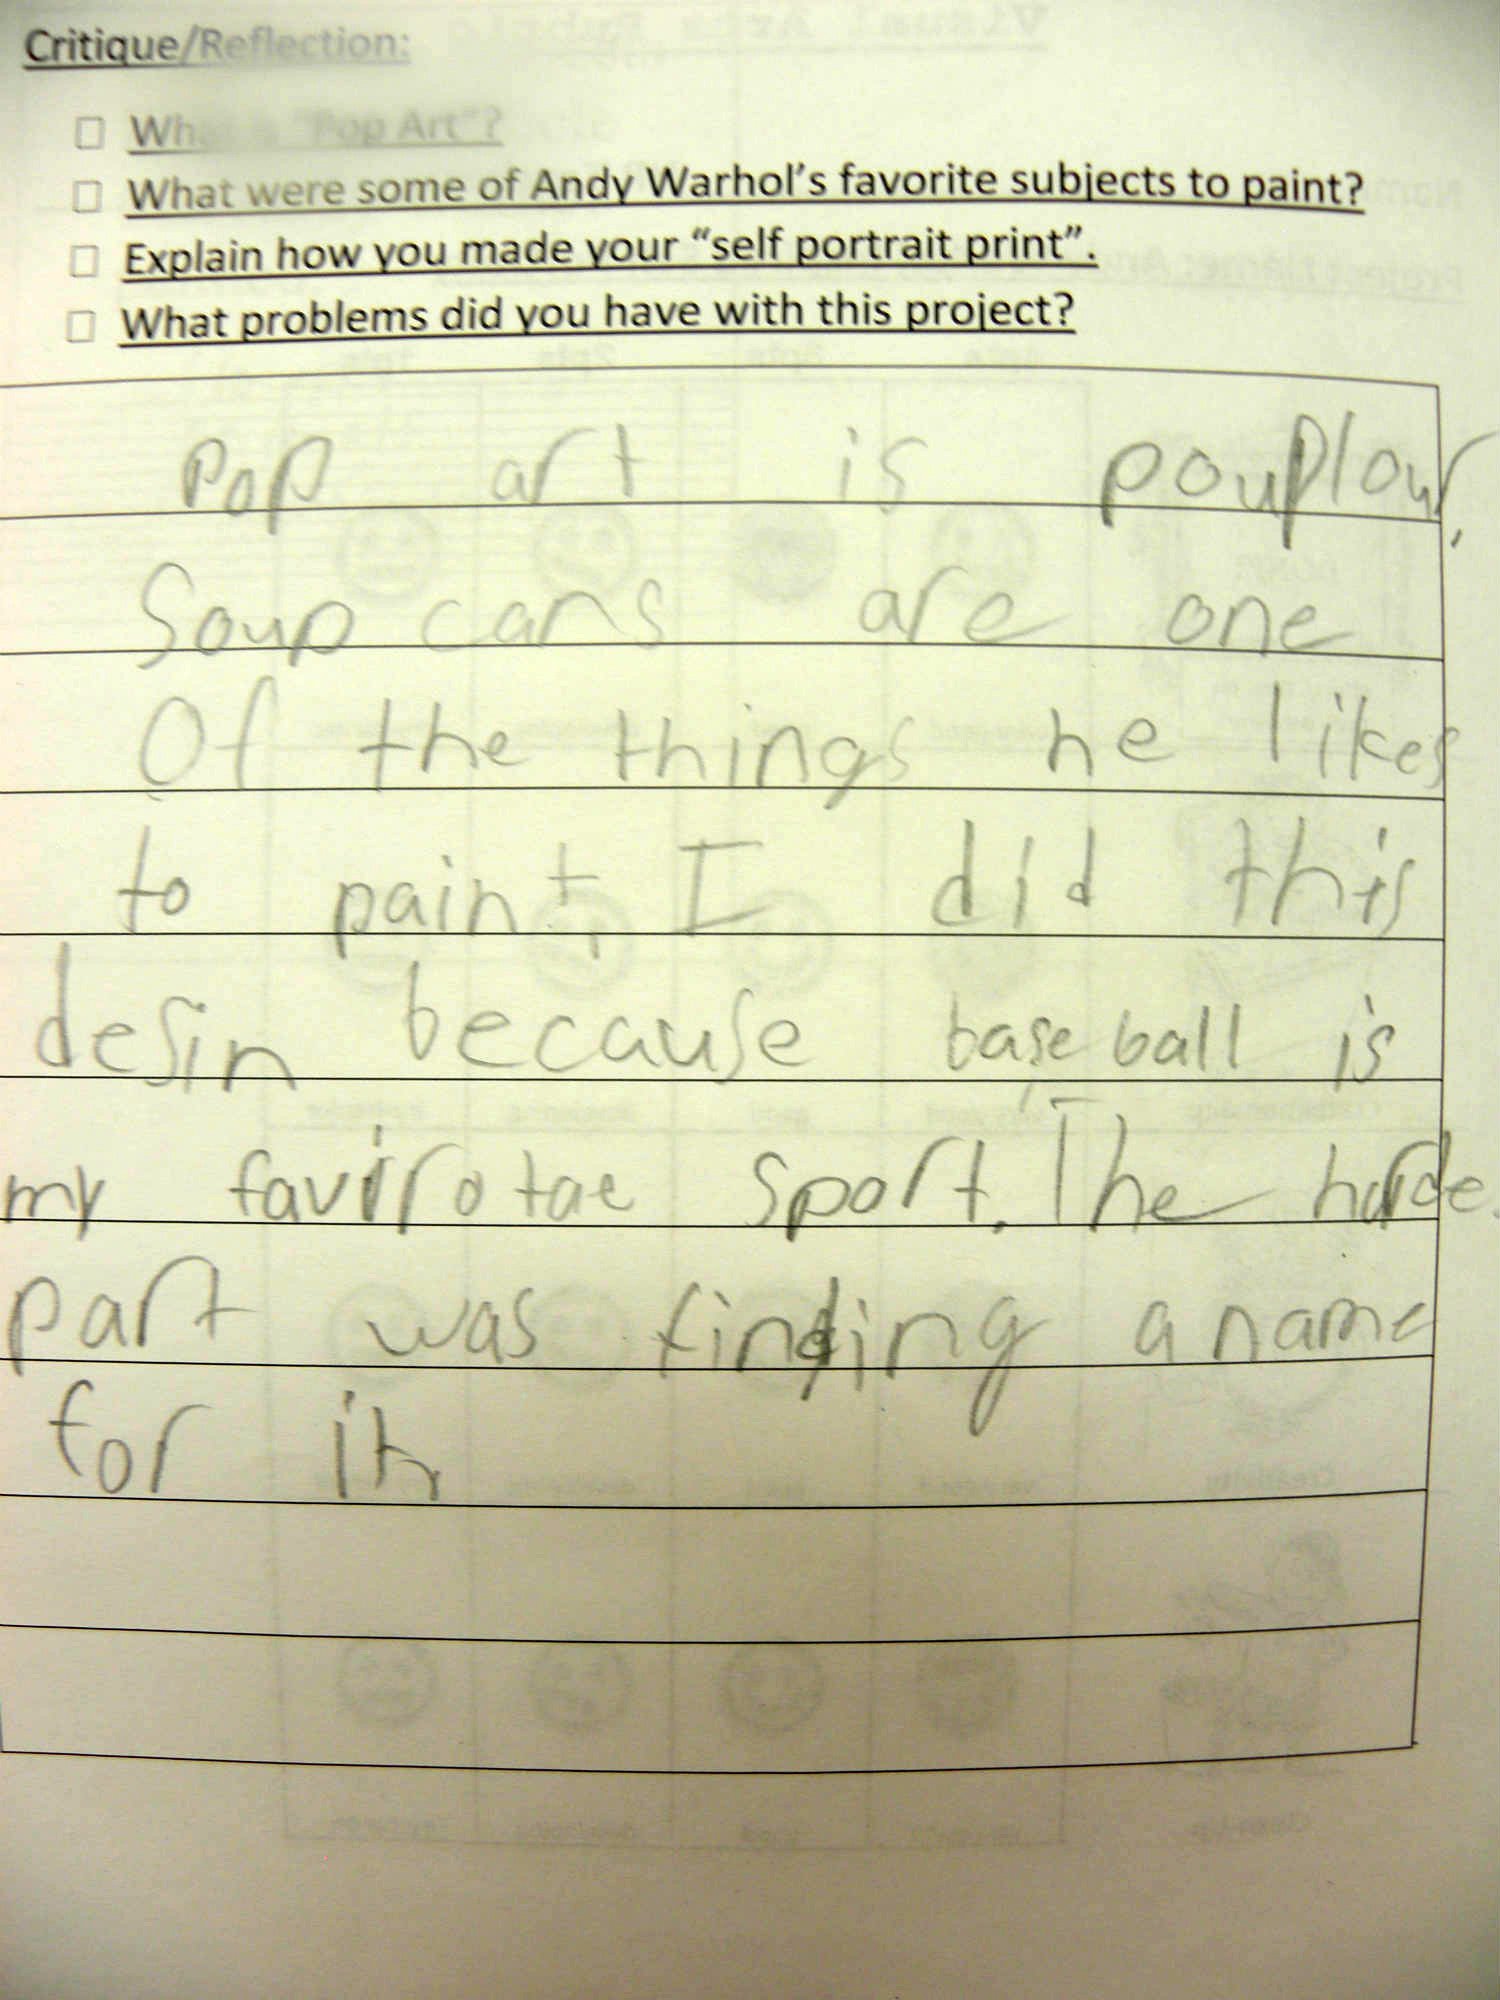 Critique/Reflection:
☐ What is "Pop Art"?
☐ What were some of Andy Warhol's favorite subjects to paint?
☐ Explain how you made your "self portrait print".
☐ What problems did you have with this project?
Pop art is pouplour.
Soup cans are one
Of the things he likes
to paint. I did this
desin because base ball is
my favirotae sport. The harde
part was finding a name
for it.